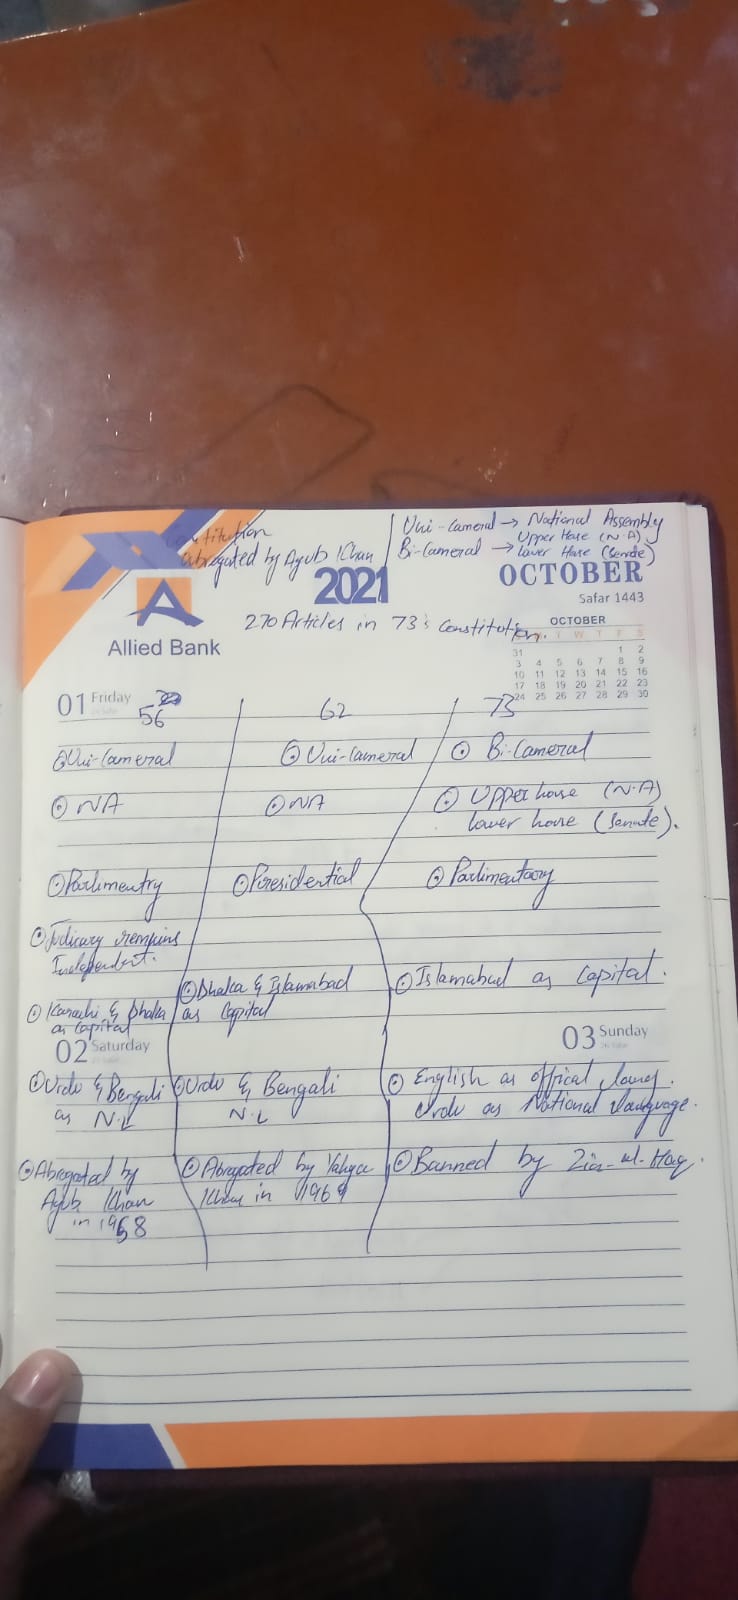 Constitution
abrogated by Ayub Khan
Uni-Cameral → National Assembly
Bi-Cameral → Upper House (N.A)
Lower House (Senate)
2021
OCTOBER
Safar 1443
Allied Bank
270 Articles in 73's Constitution.
OCTOBER
T W T F S
31 1 2
3 4 5 6 7 8 9
10 11 12 13 14 15 16
17 18 19 20 21 22 23
24 25 26 27 28 29 30
01 Friday
56 62 73
Uni-Cameral Uni-Cameral Bi-Cameral
NA NA Upper house (N.A)
lower house (Senate).
Parlimentry Presidential Parlimentary
Judicary remains
Independent.
Dhaka & Islamabad Islamabad as Capital.
Karachi & Dhaka as Capital
as Capital
02 Saturday 03 Sunday
Urdu & Bengali Urdu & Bengali English as offical lang.
as N.L N.L Urdu as National language.
Abrogated by Abrogated by Yahya Banned by Zia-ul-Haq.
Ayub Khan Khan in 1969
in 1958